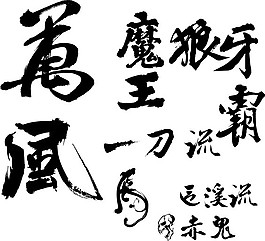 萬風
魔王
狼牙
霸
一刀流
馬
巨溪流
赤鬼